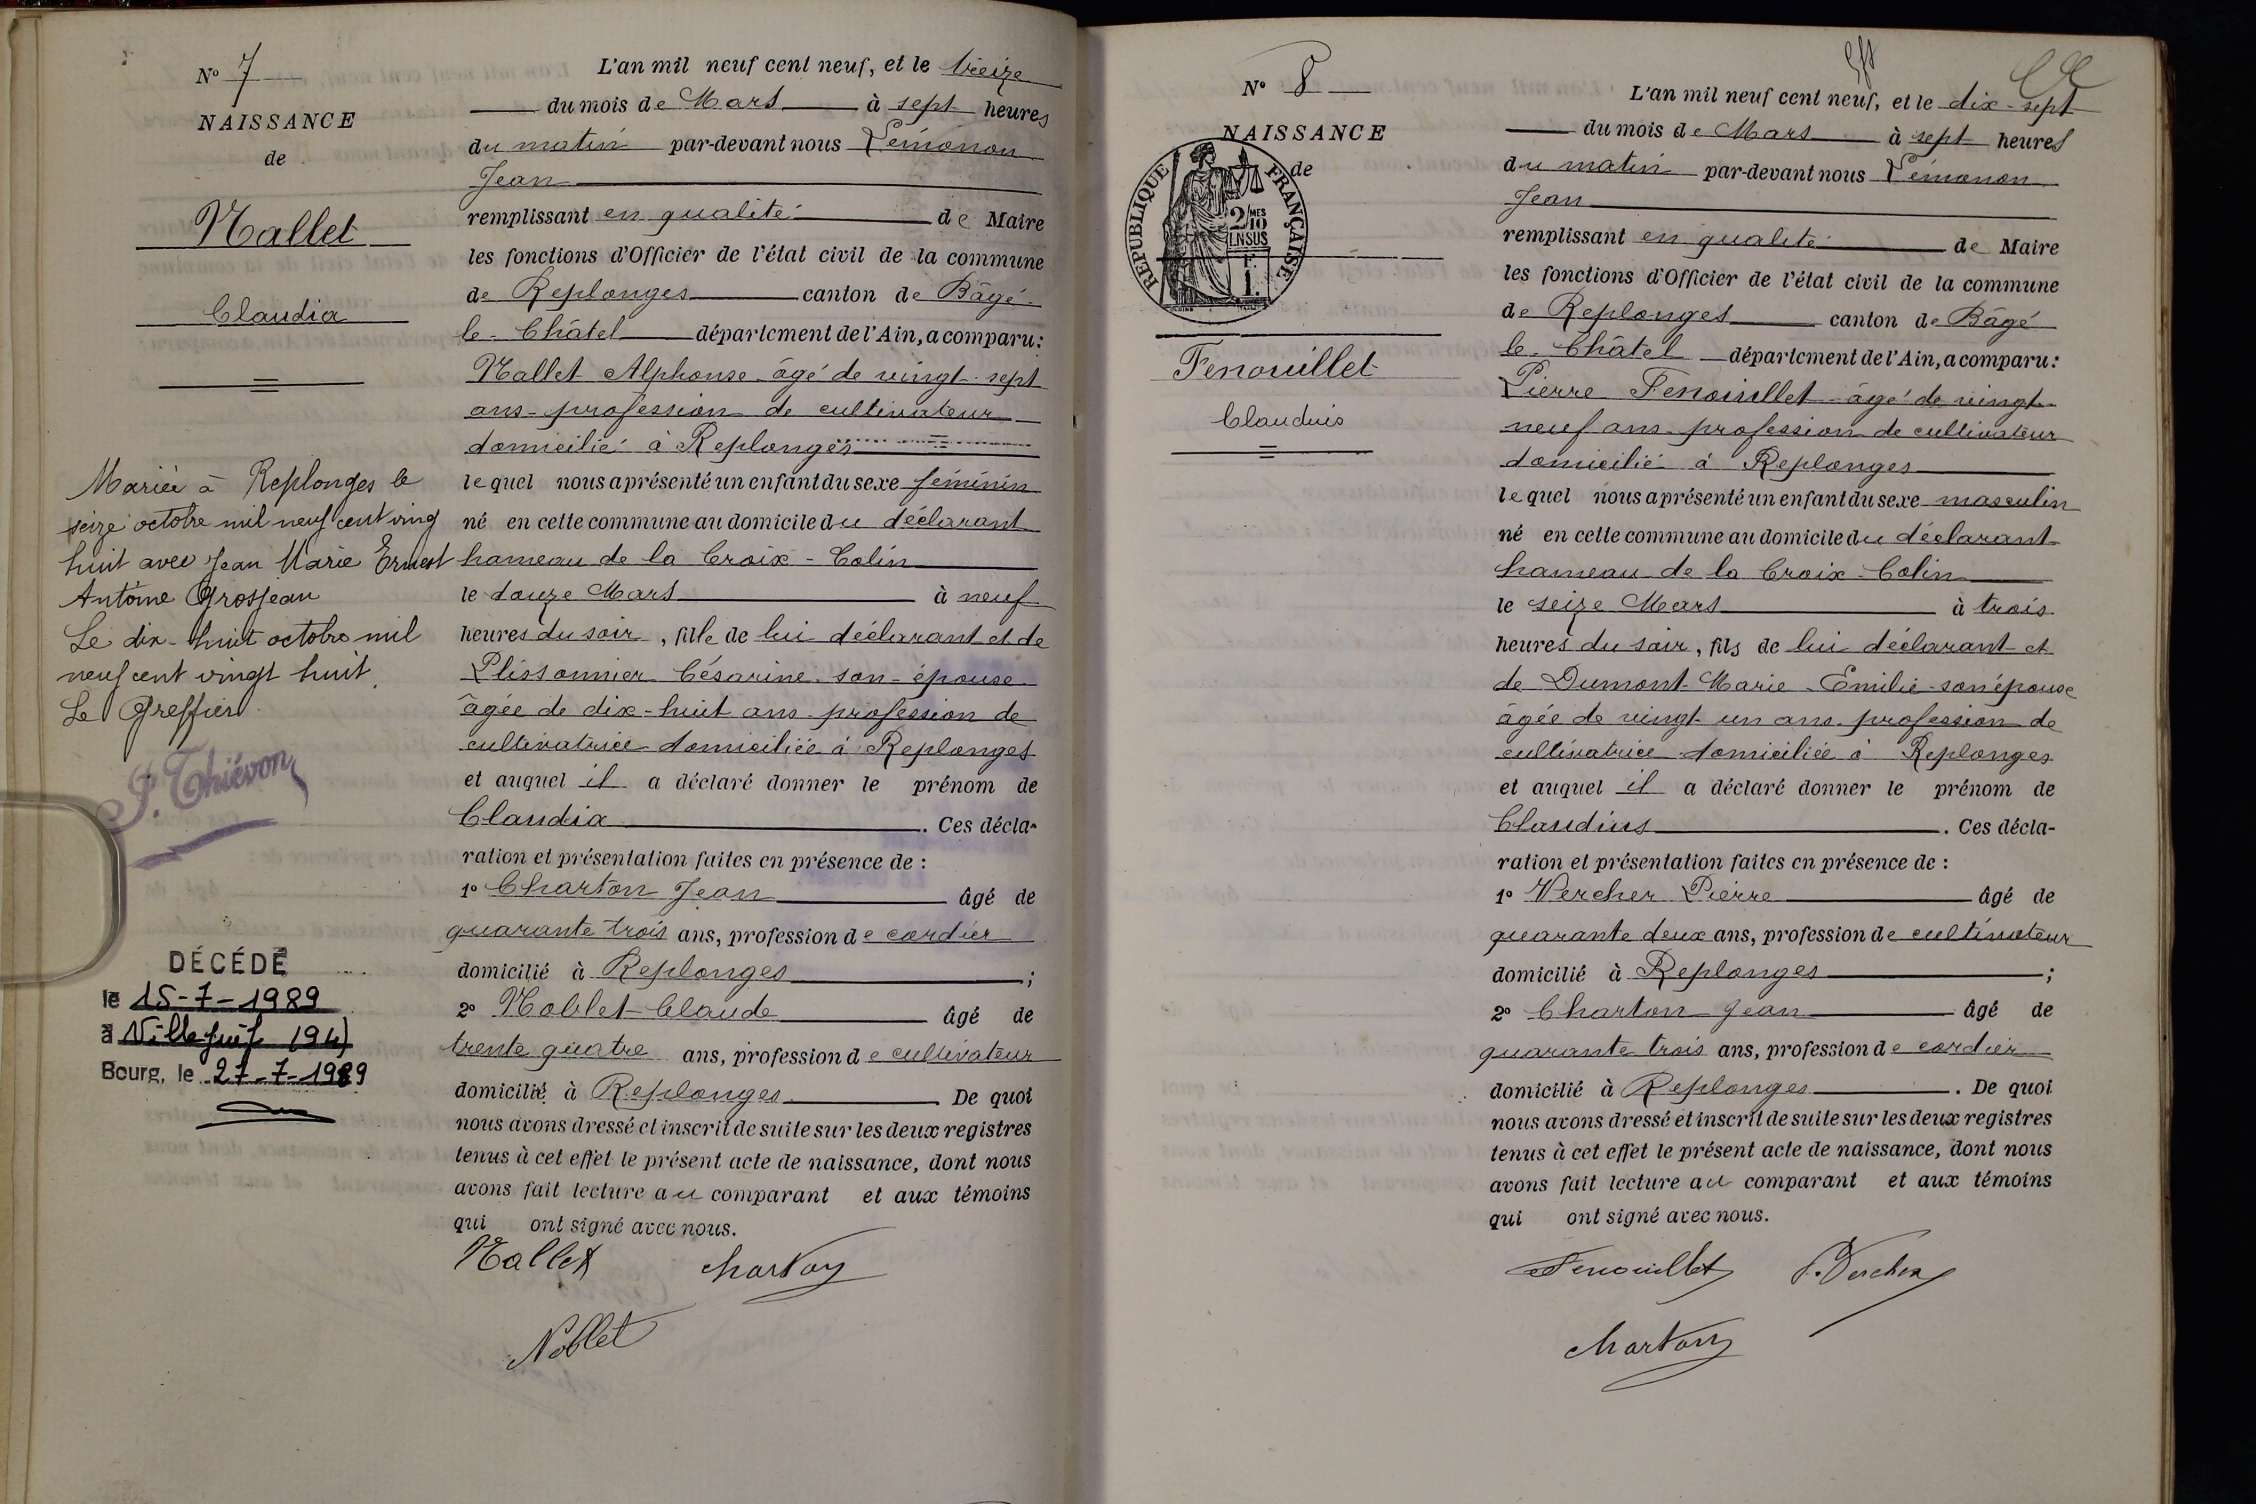 N° 7
NAISSANCE
de
Mallet
Claudia
Mariée à Replonges le
seize octobre mil neuf cent ving
huit avec Jean Marie Ernest
Antoine Grosjean
Le dix-huit octobre mil
neuf cent vingt huit
Le Greffier
J. Thiévon
DÉCÉDÉ
le 15-7-1989
à Villejuif (94)
Bourg, le 27-7-1989
L'an mil neuf cent neuf, et le treize
du mois de Mars à sept heures
du matin par-devant nous Lémonon
Jean
remplissant en qualité de Maire
les fonctions d'Officier de l'état civil de la commune
de Replonges canton de Bâgé-
le-Châtel département de l'Ain, a comparu:
Mallet Alphonse âgé de vingt-sept
ans profession de cultivateur
domicilié à Replonges
lequel nous a présenté un enfant du sexe féminin
né en cette commune au domicile du déclarant
hameau de la Croix-Colin
le douze Mars à neuf
heures du soir, fille de lui déclarant et de
Plissonnier Césarine son épouse
âgée de dix-huit ans profession de
cultivatrice domiciliée à Replonges
et auquel il a déclaré donner le prénom de
Claudia. Ces décla-
ration et présentation faites en présence de :
1° Charton Jean âgé de
quarante trois ans, profession de cordier
domicilié à Replonges;
2° Noblet Claude âgé de
trente quatre ans, profession de cultivateur
domicilié à Replonges. De quoi
nous avons dressé et inscrit de suite sur les deux registres
tenus à cet effet le présent acte de naissance, dont nous
avons fait lecture au comparant et aux témoins
qui ont signé avec nous.
Mallet Charton
Noblet
N° 8
NAISSANCE
de
RÉPUBLIQUE FRANÇAISE
2/10 MES
EN SUS
F.
1.
Fenouillet
Claudius
L'an mil neuf cent neuf, et le dix-sept
du mois de Mars à sept heures
du matin par-devant nous Lémonon
Jean
remplissant en qualité de Maire
les fonctions d'Officier de l'état civil de la commune
de Replonges canton de Bâgé
le-Châtel département de l'Ain, a comparu:
Pierre Fenouillet âgé de vingt-
neuf ans profession de cultivateur
domicilié à Replonges
lequel nous a présenté un enfant du sexe masculin
né en cette commune au domicile du déclarant
hameau de la Croix-Colin
le seize Mars à trois
heures du soir, fils de lui déclarant et
de Dumont Marie-Emilie son épouse
âgée de vingt-un ans profession de
cultivatrice domiciliée à Replonges
et auquel il a déclaré donner le prénom de
Claudius. Ces décla-
ration et présentation faites en présence de :
1° Vercher Pierre âgé de
quarante deux ans, profession de cultivateur
domicilié à Replonges;
2° Charton Jean âgé de
quarante trois ans, profession de cordier
domicilié à Replonges. De quoi
nous avons dressé et inscrit de suite sur les deux registres
tenus à cet effet le présent acte de naissance, dont nous
avons fait lecture au comparant et aux témoins
qui ont signé avec nous.
Fenouillet P. Vercher
Charton